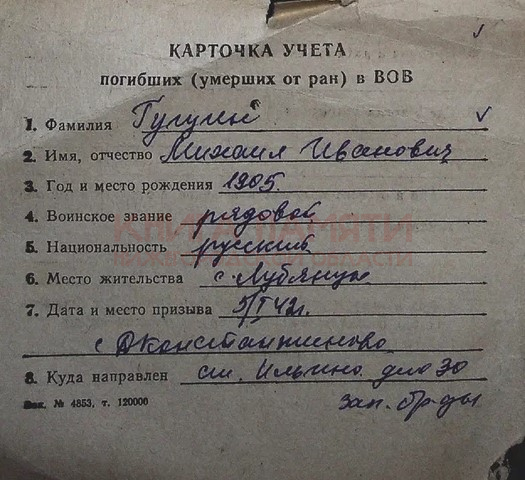 КАРТОЧКА УЧЕТА
погибших (умерших от ран) в ВОВ
1. Фамилия Гугин
2. Имя, отчество Михаил Иванович
3. Год и место рождения 1905.
4. Воинское звание рядовой
КНИГА ПАМЯТИ
5. Национальность русский
6. Место жительства с. Лубянцы
7. Дата и место призыва 5/I 42г.
с Дконстантиново
8. Куда направлен ст. Ильино 30
зап. бр-ды
Зак. № 4853, т. 120000